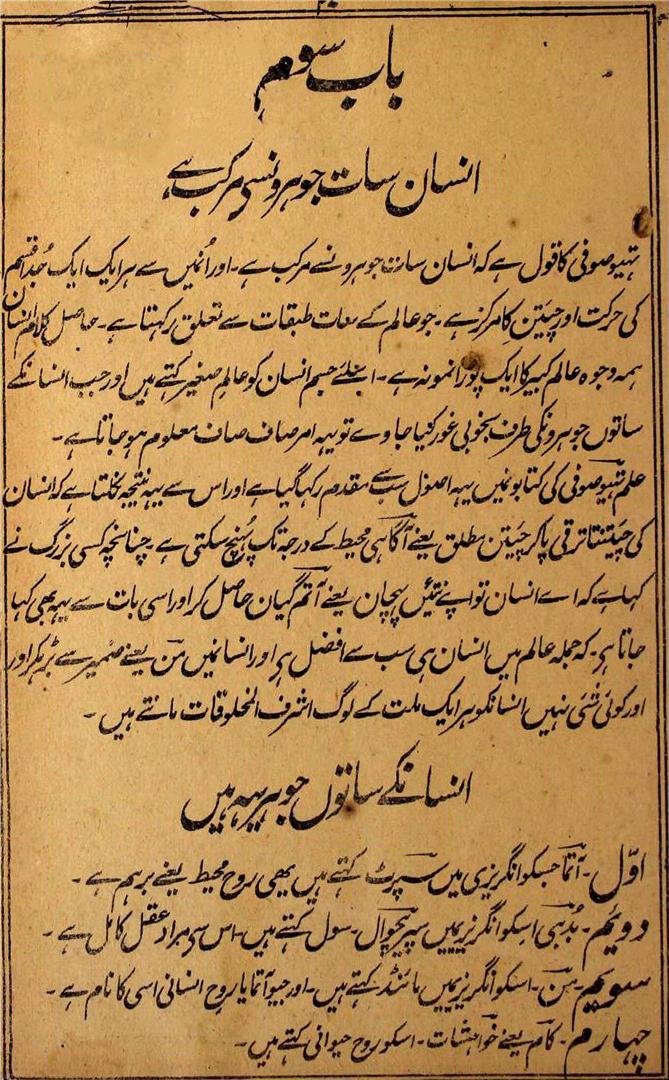 ۲۰
باب سوم
انسان سات جوہرونسے مرکب ہے
تہیوصوفی کا قول ہے کہ انسان سات جوہرونسے مرکب ہے۔ اور اُنمیں سے ہر ایک ایک جُدا قسم
کی حرکت اور چیتن کا مرکز ہے۔ جو عالم کے سات طبقات سے تعلق رکہتا ہے۔ حاصل کلام انسان
ہمہ وجوہ عالم کبیر کا ایک پورا نمونہ ہے۔ اسلئے جسم انسان کو عالم صغیر کہتے ہیں اور جب انسانکے
ساتوں جوہرونکی طرف بخوبی غور کیا جاوے تو یہہ امر صاف صاف معلوم ہو جاتا ہے۔
علم تہیوصوفی کی کتابونمیں یہہ اصول سب سے مقدم رکہا گیا ہے اور اس سے یہہ نتیجہ نکلتا ہے کہ انسان
کی چیتنتا ترقی پاکر چیتن مطلق یعنے آگاہی محیط کے درجہ تک پہُنچ سکتی ہے۔ چنانچہ کسی بزرگ نے
کہا ہے کہ اے انسان تو اپنے تئیں پہچان یعنے آتم گیان حاصل کر اور اسی بات سے یہہ بھی کہا
جاتا ہی۔ کہ جملہ عالم میں انسان ہی سب سے افضل ہی اور انسانمیں من یعنے ضمیر سے بڑہکر اور
اور کوئی شئی نہیں انسانکو ہر ایک ملت کے لوگ اشرف المخلوقات مانتے ہیں۔
انسانکے ساتوں جوہر یہہ ہیں
اوّل۔ آتما جسکو انگریزی میں سپرٹ کہتے ہیں یہی روح محیط یعنے برہم ہے۔
دویُم۔ بُدہی اسکو انگریزیمیں سپریچوال۔ سول کہتے ہیں۔ اس سی مراد عقل کامل ہے۔
سویم۔ من۔ اسکو انگریزیمیں مائنڈ کہتے ہیں۔ اور جیو آتما یا روح انسانی اسی کا نام ہے۔
چہارم۔ کام یعنے خواہشات۔ اسکو روح حیوانی کہتے ہیں۔